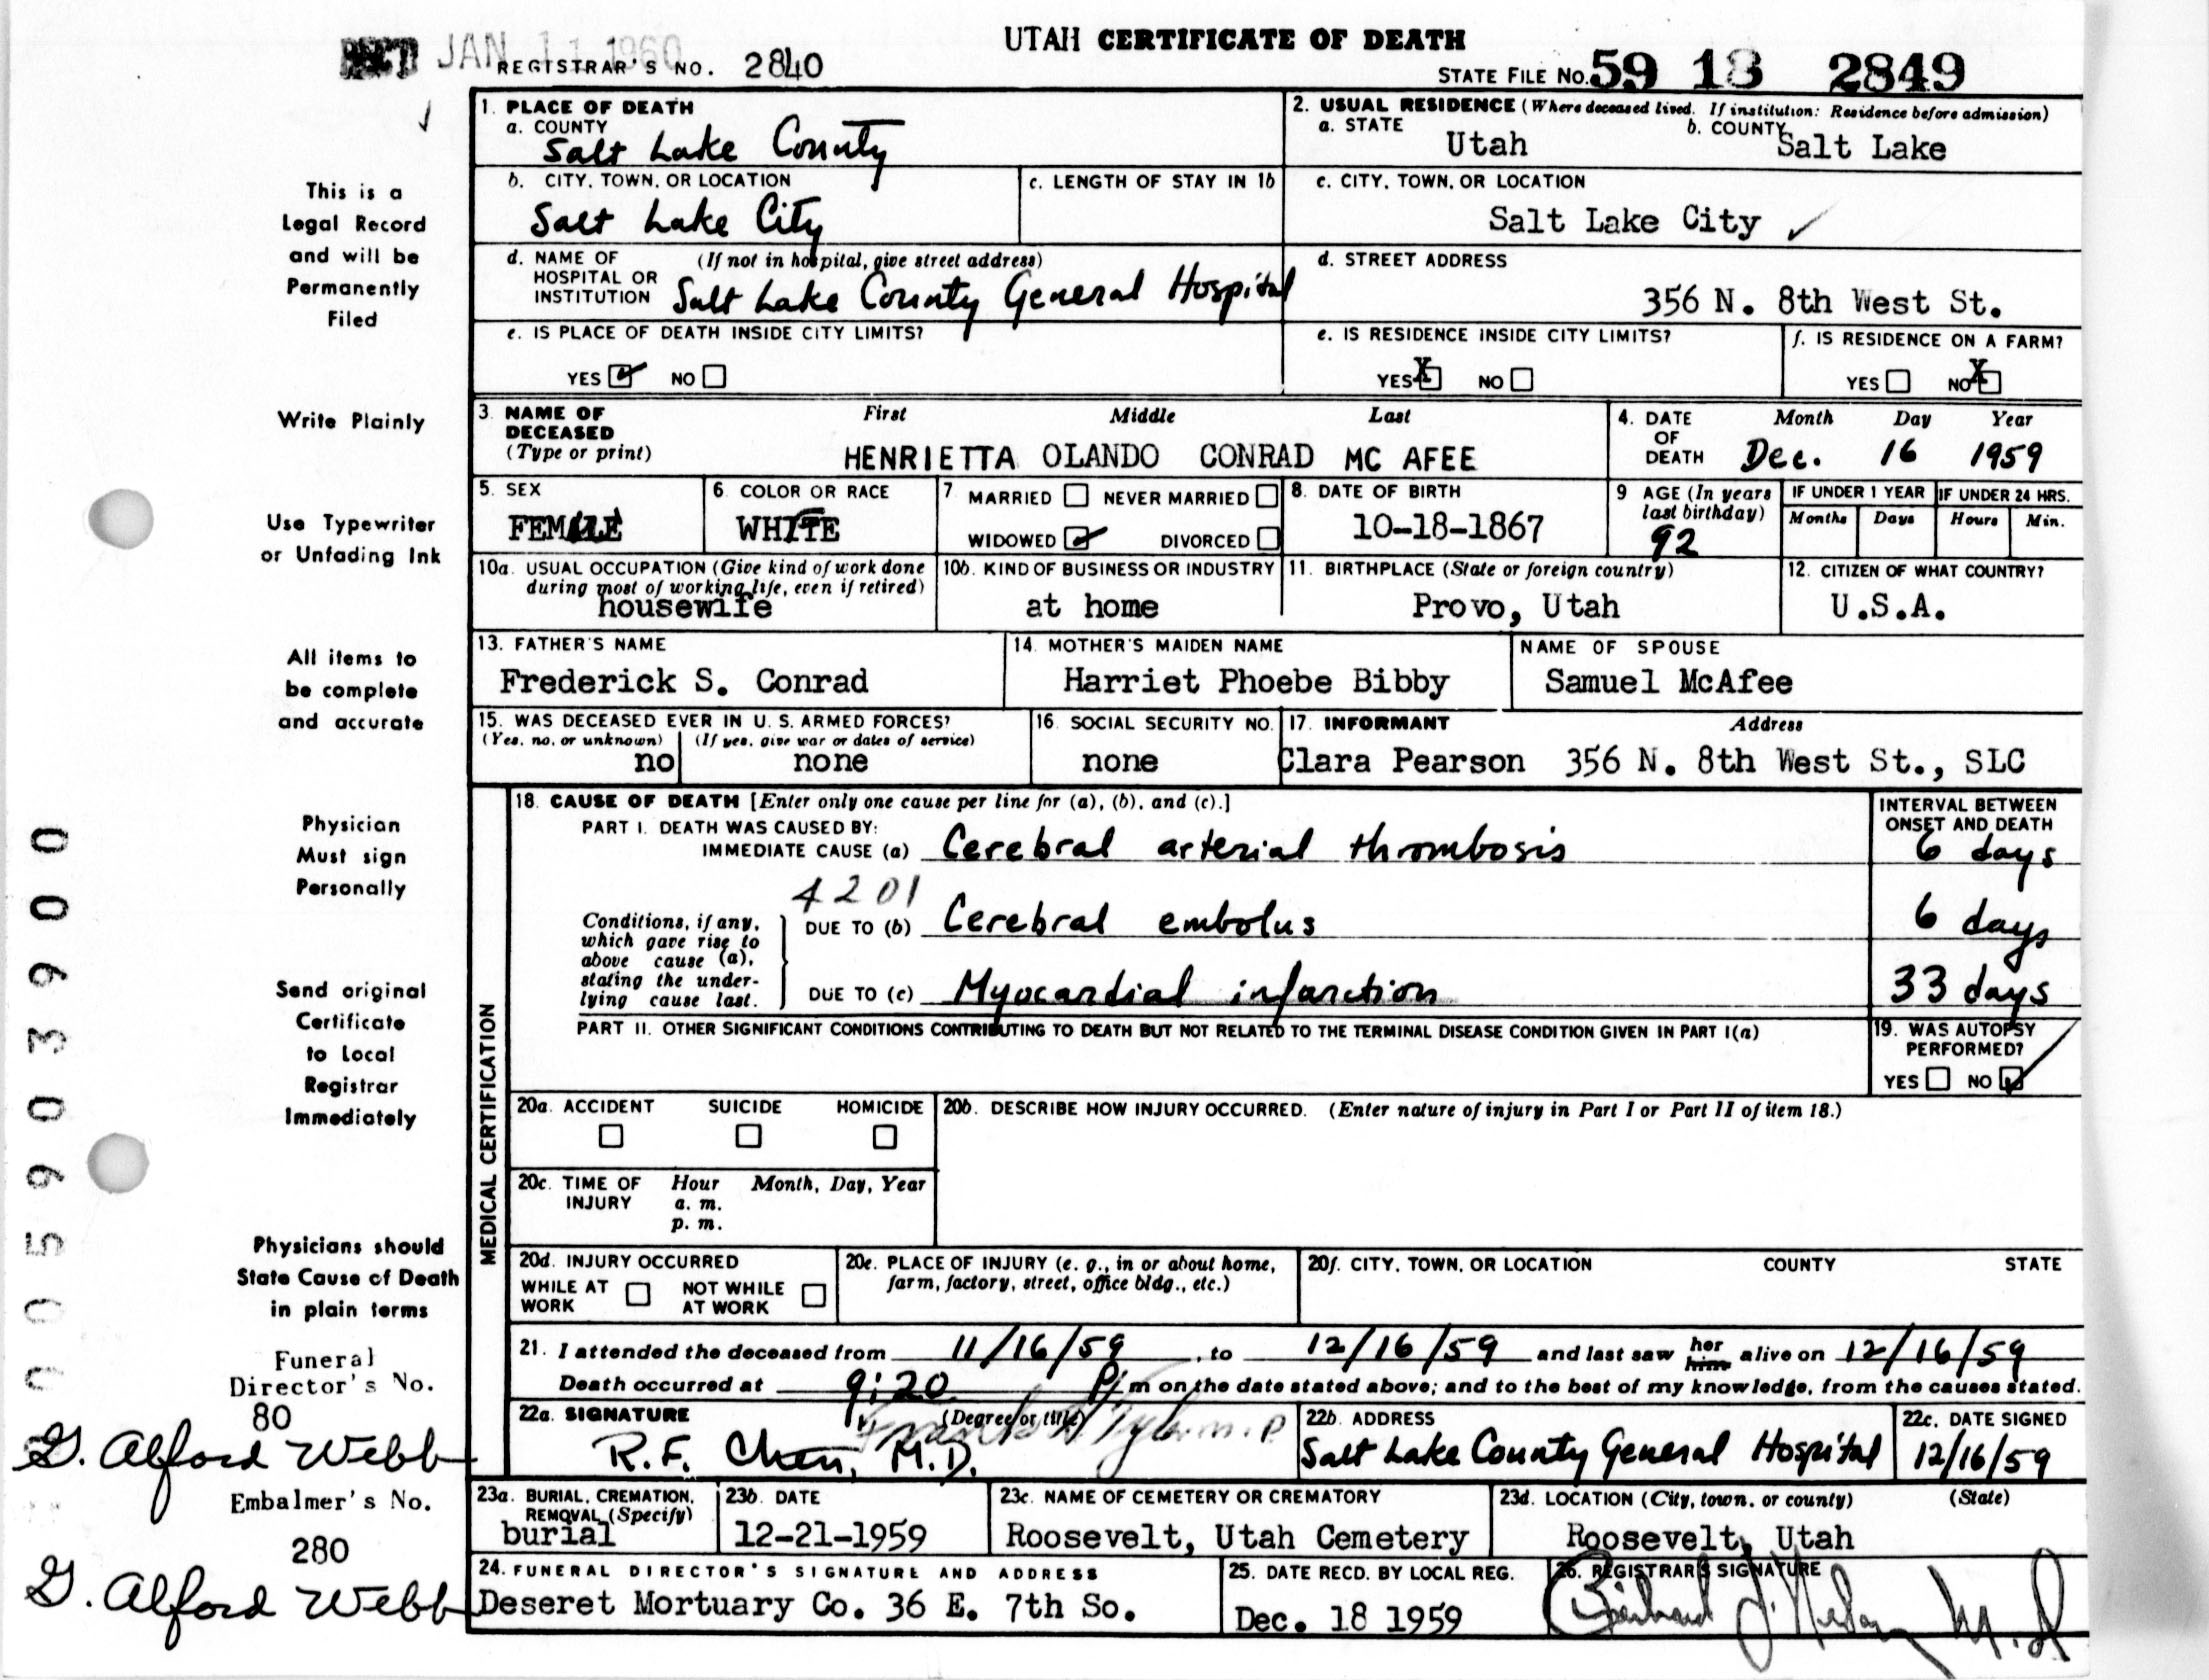 JAN 11 1960
UTAH CERTIFICATE OF DEATH
REGISTRAR'S NO. 2840
STATE FILE NO. 59 18 2849
1. PLACE OF DEATH
a. COUNTY
Salt Lake County
2. USUAL RESIDENCE (Where deceased lived. If institution: Residence before admission)
a. STATE Utah b. COUNTY Salt Lake
b. CITY, TOWN, OR LOCATION
Salt Lake City
c. LENGTH OF STAY IN 1b
c. CITY, TOWN, OR LOCATION
Salt Lake City ✓
d. NAME OF HOSPITAL OR INSTITUTION (If not in hospital, give street address)
Salt Lake County General Hospital
d. STREET ADDRESS
356 N. 8th West St.
e. IS PLACE OF DEATH INSIDE CITY LIMITS?
YES ☑ NO ☐
e. IS RESIDENCE INSIDE CITY LIMITS?
YES ☒ NO ☐
f. IS RESIDENCE ON A FARM?
YES ☐ NO ☒
3. NAME OF DECEASED (Type or print)
First Middle Last
HENRIETTA OLANDO CONRAD MC AFEE
4. DATE OF DEATH
Month Day Year
Dec. 16 1959
5. SEX
FEMALE
6. COLOR OR RACE
WHITE
7 MARRIED ☐ NEVER MARRIED ☐
WIDOWED ☑ DIVORCED ☐
8. DATE OF BIRTH
10-18-1867
9 AGE (In years last birthday)
92
IF UNDER 1 YEAR
Months Days
IF UNDER 24 HRS.
Hours Min.
10a. USUAL OCCUPATION (Give kind of work done during most of working life, even if retired)
housewife
10b. KIND OF BUSINESS OR INDUSTRY
at home
11. BIRTHPLACE (State or foreign country)
Provo, Utah
12. CITIZEN OF WHAT COUNTRY?
U.S.A.
13. FATHER'S NAME
Frederick S. Conrad
14. MOTHER'S MAIDEN NAME
Harriet Phoebe Bibby
NAME OF SPOUSE
Samuel McAfee
15. WAS DECEASED EVER IN U. S. ARMED FORCES?
(Yes, no, or unknown) (If yes, give war or dates of service)
no none
16. SOCIAL SECURITY NO.
none
17. INFORMANT Address
Clara Pearson 356 N. 8th West St., SLC
MEDICAL CERTIFICATION
18. CAUSE OF DEATH [Enter only one cause per line for (a), (b), and (c).]
INTERVAL BETWEEN ONSET AND DEATH
PART I. DEATH WAS CAUSED BY:
IMMEDIATE CAUSE (a) Cerebral arterial thrombosis 6 days
4201
Conditions, if any, which gave rise to above cause (a), stating the underlying cause last.
DUE TO (b) Cerebral embolus 6 days
DUE TO (c) Myocardial infarction 33 days
PART II. OTHER SIGNIFICANT CONDITIONS CONTRIBUTING TO DEATH BUT NOT RELATED TO THE TERMINAL DISEASE CONDITION GIVEN IN PART I(a)
19. WAS AUTOPSY PERFORMED?
YES ☐ NO ☑
20a. ACCIDENT SUICIDE HOMICIDE
☐ ☐ ☐
20b. DESCRIBE HOW INJURY OCCURRED. (Enter nature of injury in Part I or Part II of item 18.)
20c. TIME OF INJURY Hour Month, Day, Year
a. m.
p. m.
20d. INJURY OCCURRED
WHILE AT WORK ☐ NOT WHILE AT WORK ☐
20e. PLACE OF INJURY (e. g., in or about home, farm, factory, street, office bldg., etc.)
20f. CITY, TOWN, OR LOCATION COUNTY STATE
21. I attended the deceased from 11/16/59, to 12/16/59 and last saw her him alive on 12/16/59
Death occurred at 9:20 P m on the date stated above; and to the best of my knowledge, from the causes stated.
22a. SIGNATURE (Degree or title)
R.F. Chen, M.D. Frank H Tyler M.D
22b. ADDRESS
Salt Lake County General Hospital
22c. DATE SIGNED
12/16/59
23a. BURIAL, CREMATION, REMOVAL (Specify)
burial
23b. DATE
12-21-1959
23c. NAME OF CEMETERY OR CREMATORY
Roosevelt, Utah Cemetery
23d. LOCATION (City, town, or county) (State)
Roosevelt, Utah
24. FUNERAL DIRECTOR'S SIGNATURE AND ADDRESS
Deseret Mortuary Co. 36 E. 7th So.
25. DATE RECD. BY LOCAL REG.
Dec. 18 1959
26. REGISTRAR'S SIGNATURE
M.D
This is a
Legal Record
and will be
Permanently
Filed
Write Plainly
Use Typewriter
or Unfading Ink
All items to
be complete
and accurate
Physician
Must sign
Personally
Send original
Certificate
to Local
Registrar
Immediately
Physicians should
State Cause of Death
in plain terms
Funeral
Director's No.
80
G. Alford Webb
Embalmer's No.
280
G. Alford Webb
005903900